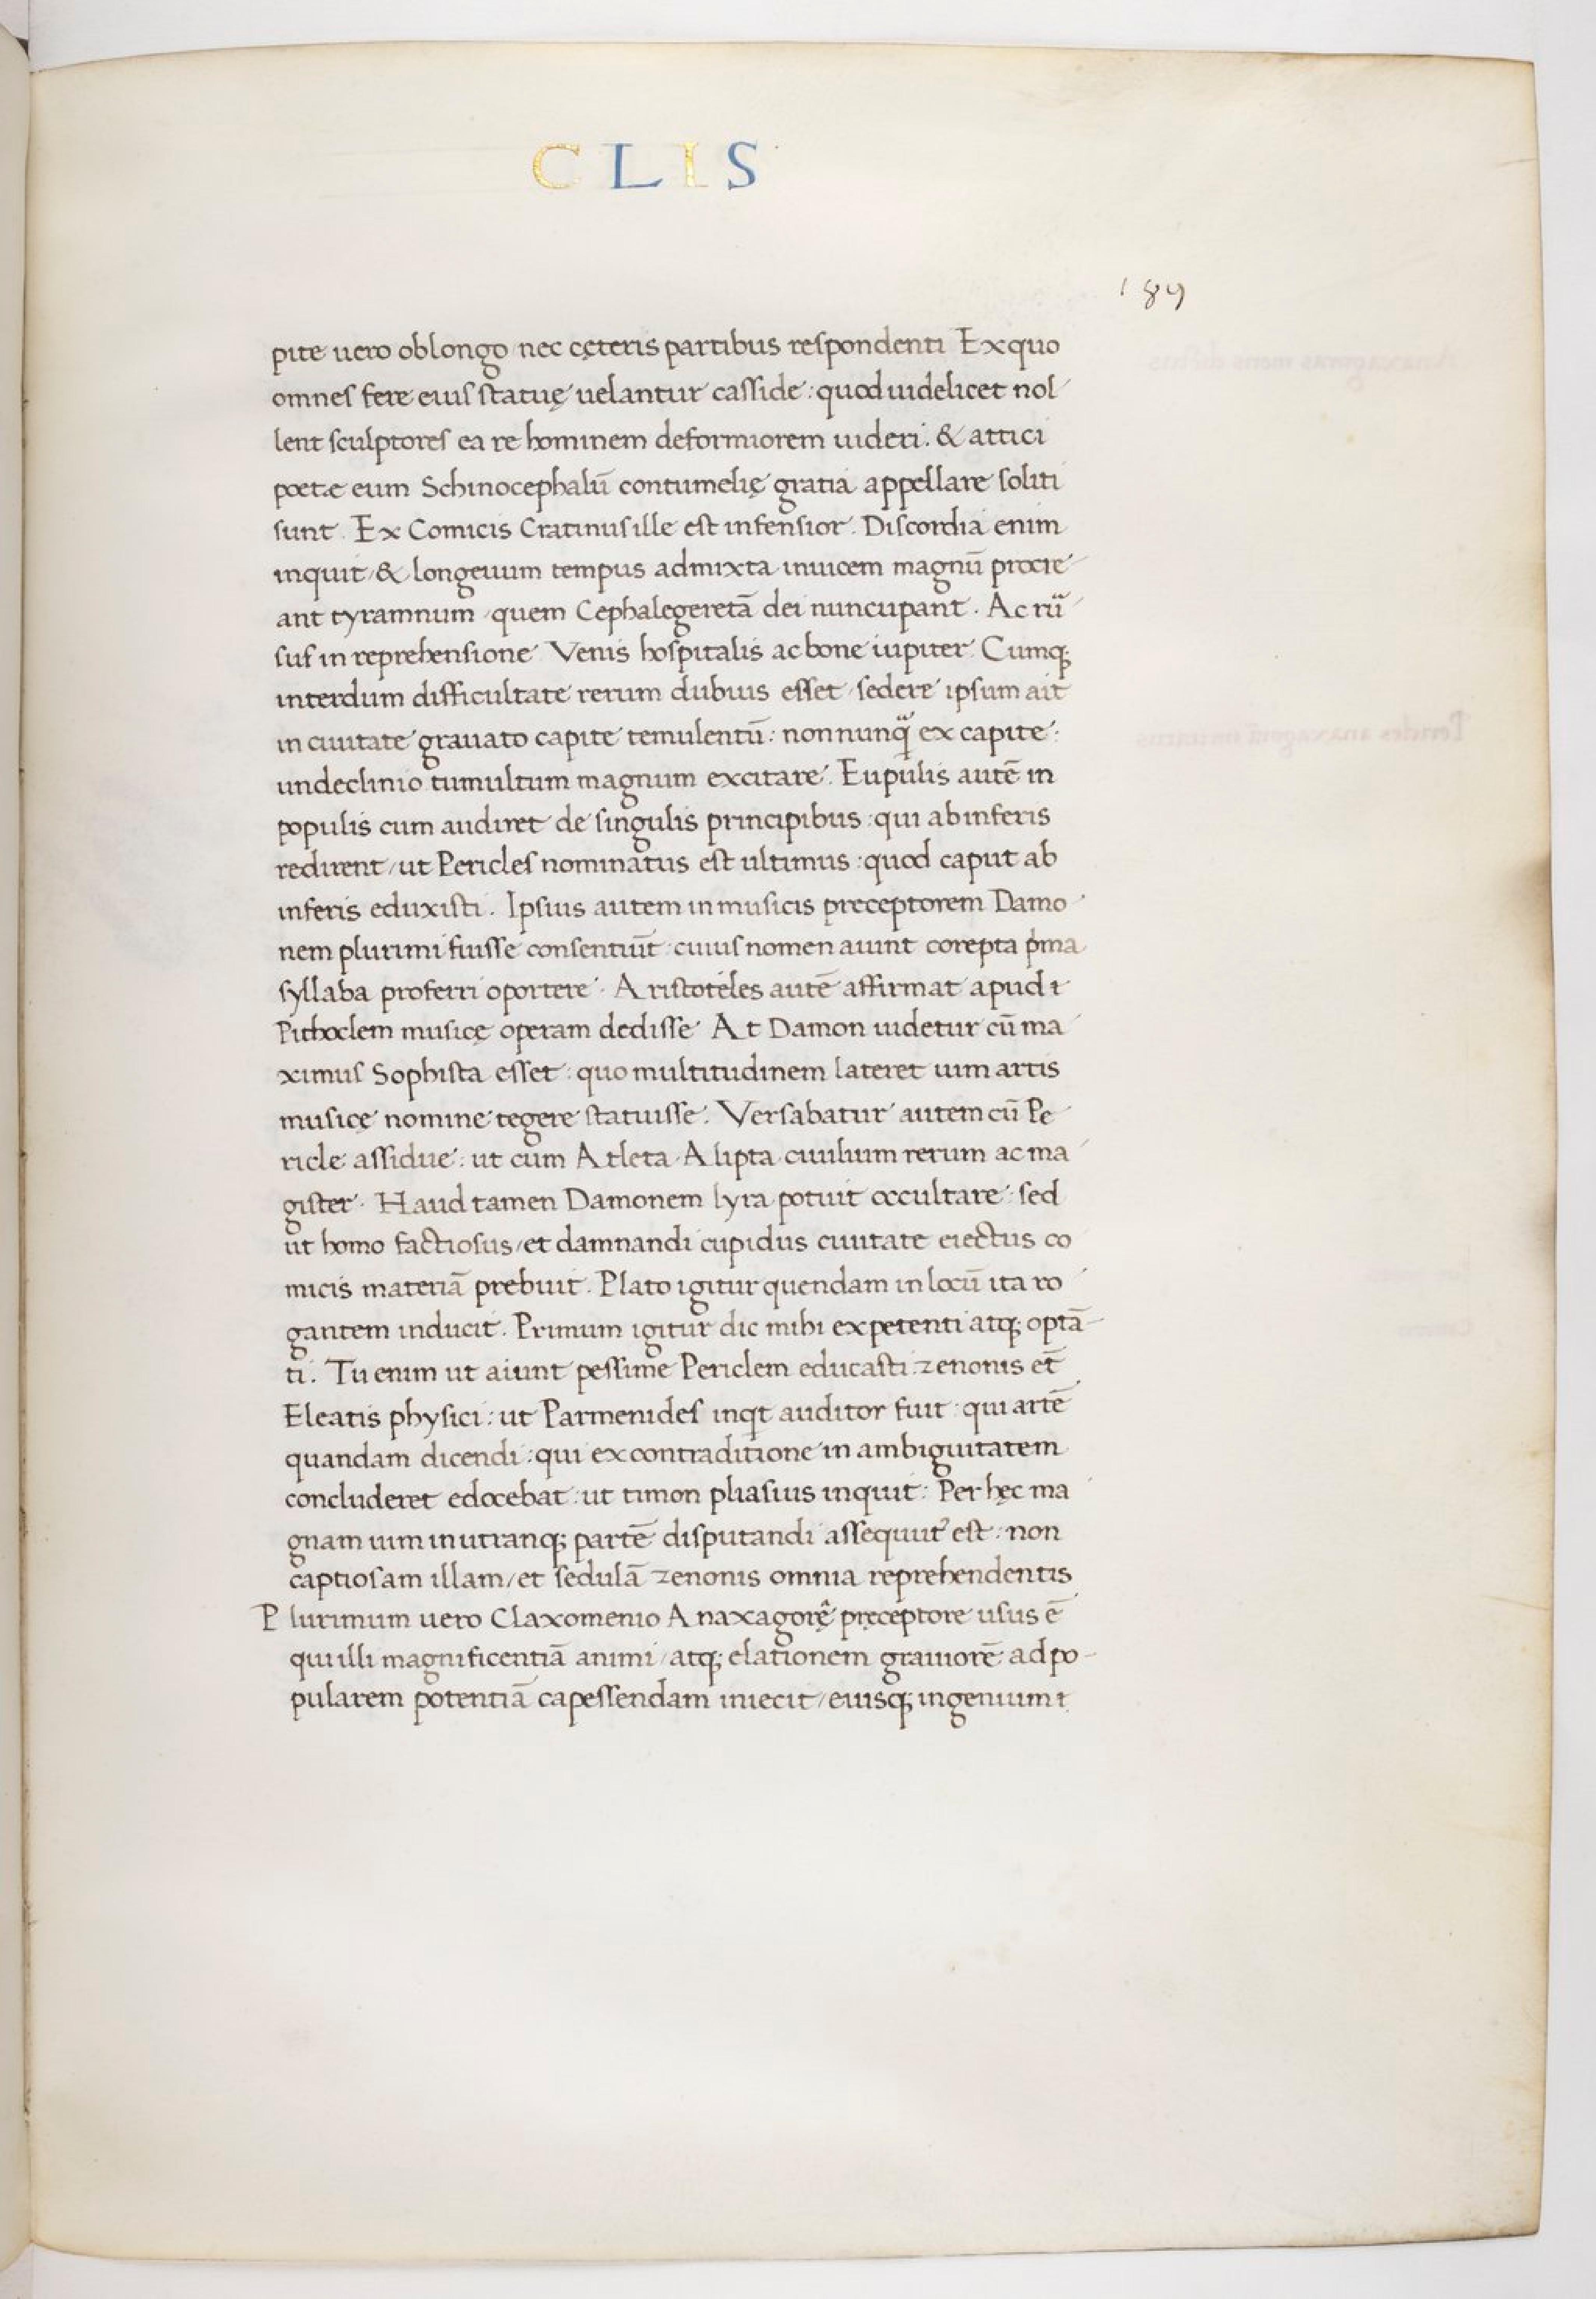 CLIS
189
pite uero oblongo nec cęteris partibus respondenti Ex quo
omnes fere eius statuę uelantur casside: quod uidelicet nol
lent sculptores ea re hominem deformiorem uideri. & attici
poetæ eum Schinocephalū contumelię gratia appellare soliti
sunt. Ex Comicis Cratinus ille est infensior. Discordia enim
inquit/& longeuum tempus admixta inuicem magnū procre
ant tyramnum/quem Cephalegeretā dei nuncupant. Ac rū
sus in reprehensione Venis hospitalis ac bone iupiter. Cumq;
interdum difficultate rerum dubius esset/sedere ipsum ait
in ciuitate grauato capite temulentū: nonnunq̃ ex capite:
undeclinio tumultum magnum excitare. Eupulis autē in
populis cum audiret de singulis principibus: qui ab inferis
redirent/ut Pericles nominatus est ultimus: quod caput ab
inferis eduxisti. Ipsius autem in musicis pręceptorem Damo
nem plurimi fuisse consentiūt: cuius nomen aiunt corepta p̍ma
syllaba proferri oportere. Aristoteles autē affirmat apud
Pithoclem musicę operam dedisse At Damon uidetur cū ma
ximus Sophista esset: quo multitudinem lateret uim artis
musicę nomine tegere statuisse. Versabatur autem cū Pe
ricle assidue: ut cum Atleta Alipta ciuilium rerum ac ma
gister. Haud tamen Damonem lyra potuit occultare: sed
ut homo factiosus/et damnandi cupidus ciuitate eiectus co
micis materiā prebuit. Plato igitur quendam in locū ita ro
gantem inducit. Primum igitur dic mihi expetenti atq; optā
ti. Tu enim ut aiunt pessime Periclem educasti: zenonis et̄
Eleatis physici: ut Parmenides inqt auditor fuit: qui artē
quandam dicendi: qui ex contraditione in ambiguitatem
concluderet edocebat: ut timon pliasius inquit: Per hęc ma
gnam uim in utranq; partē disputandi assequut᾽ est: non
captiosam illam/et sedulā zenonis omnia reprehendentis
Plurimum uero Claxomenio Anaxagorę̂ pręceptore usus ē
qui illi magnificentiā animi/atq; elationem grauiorē ad po-
pularem potentiā capessendam iniecit/eiusq; ingenium